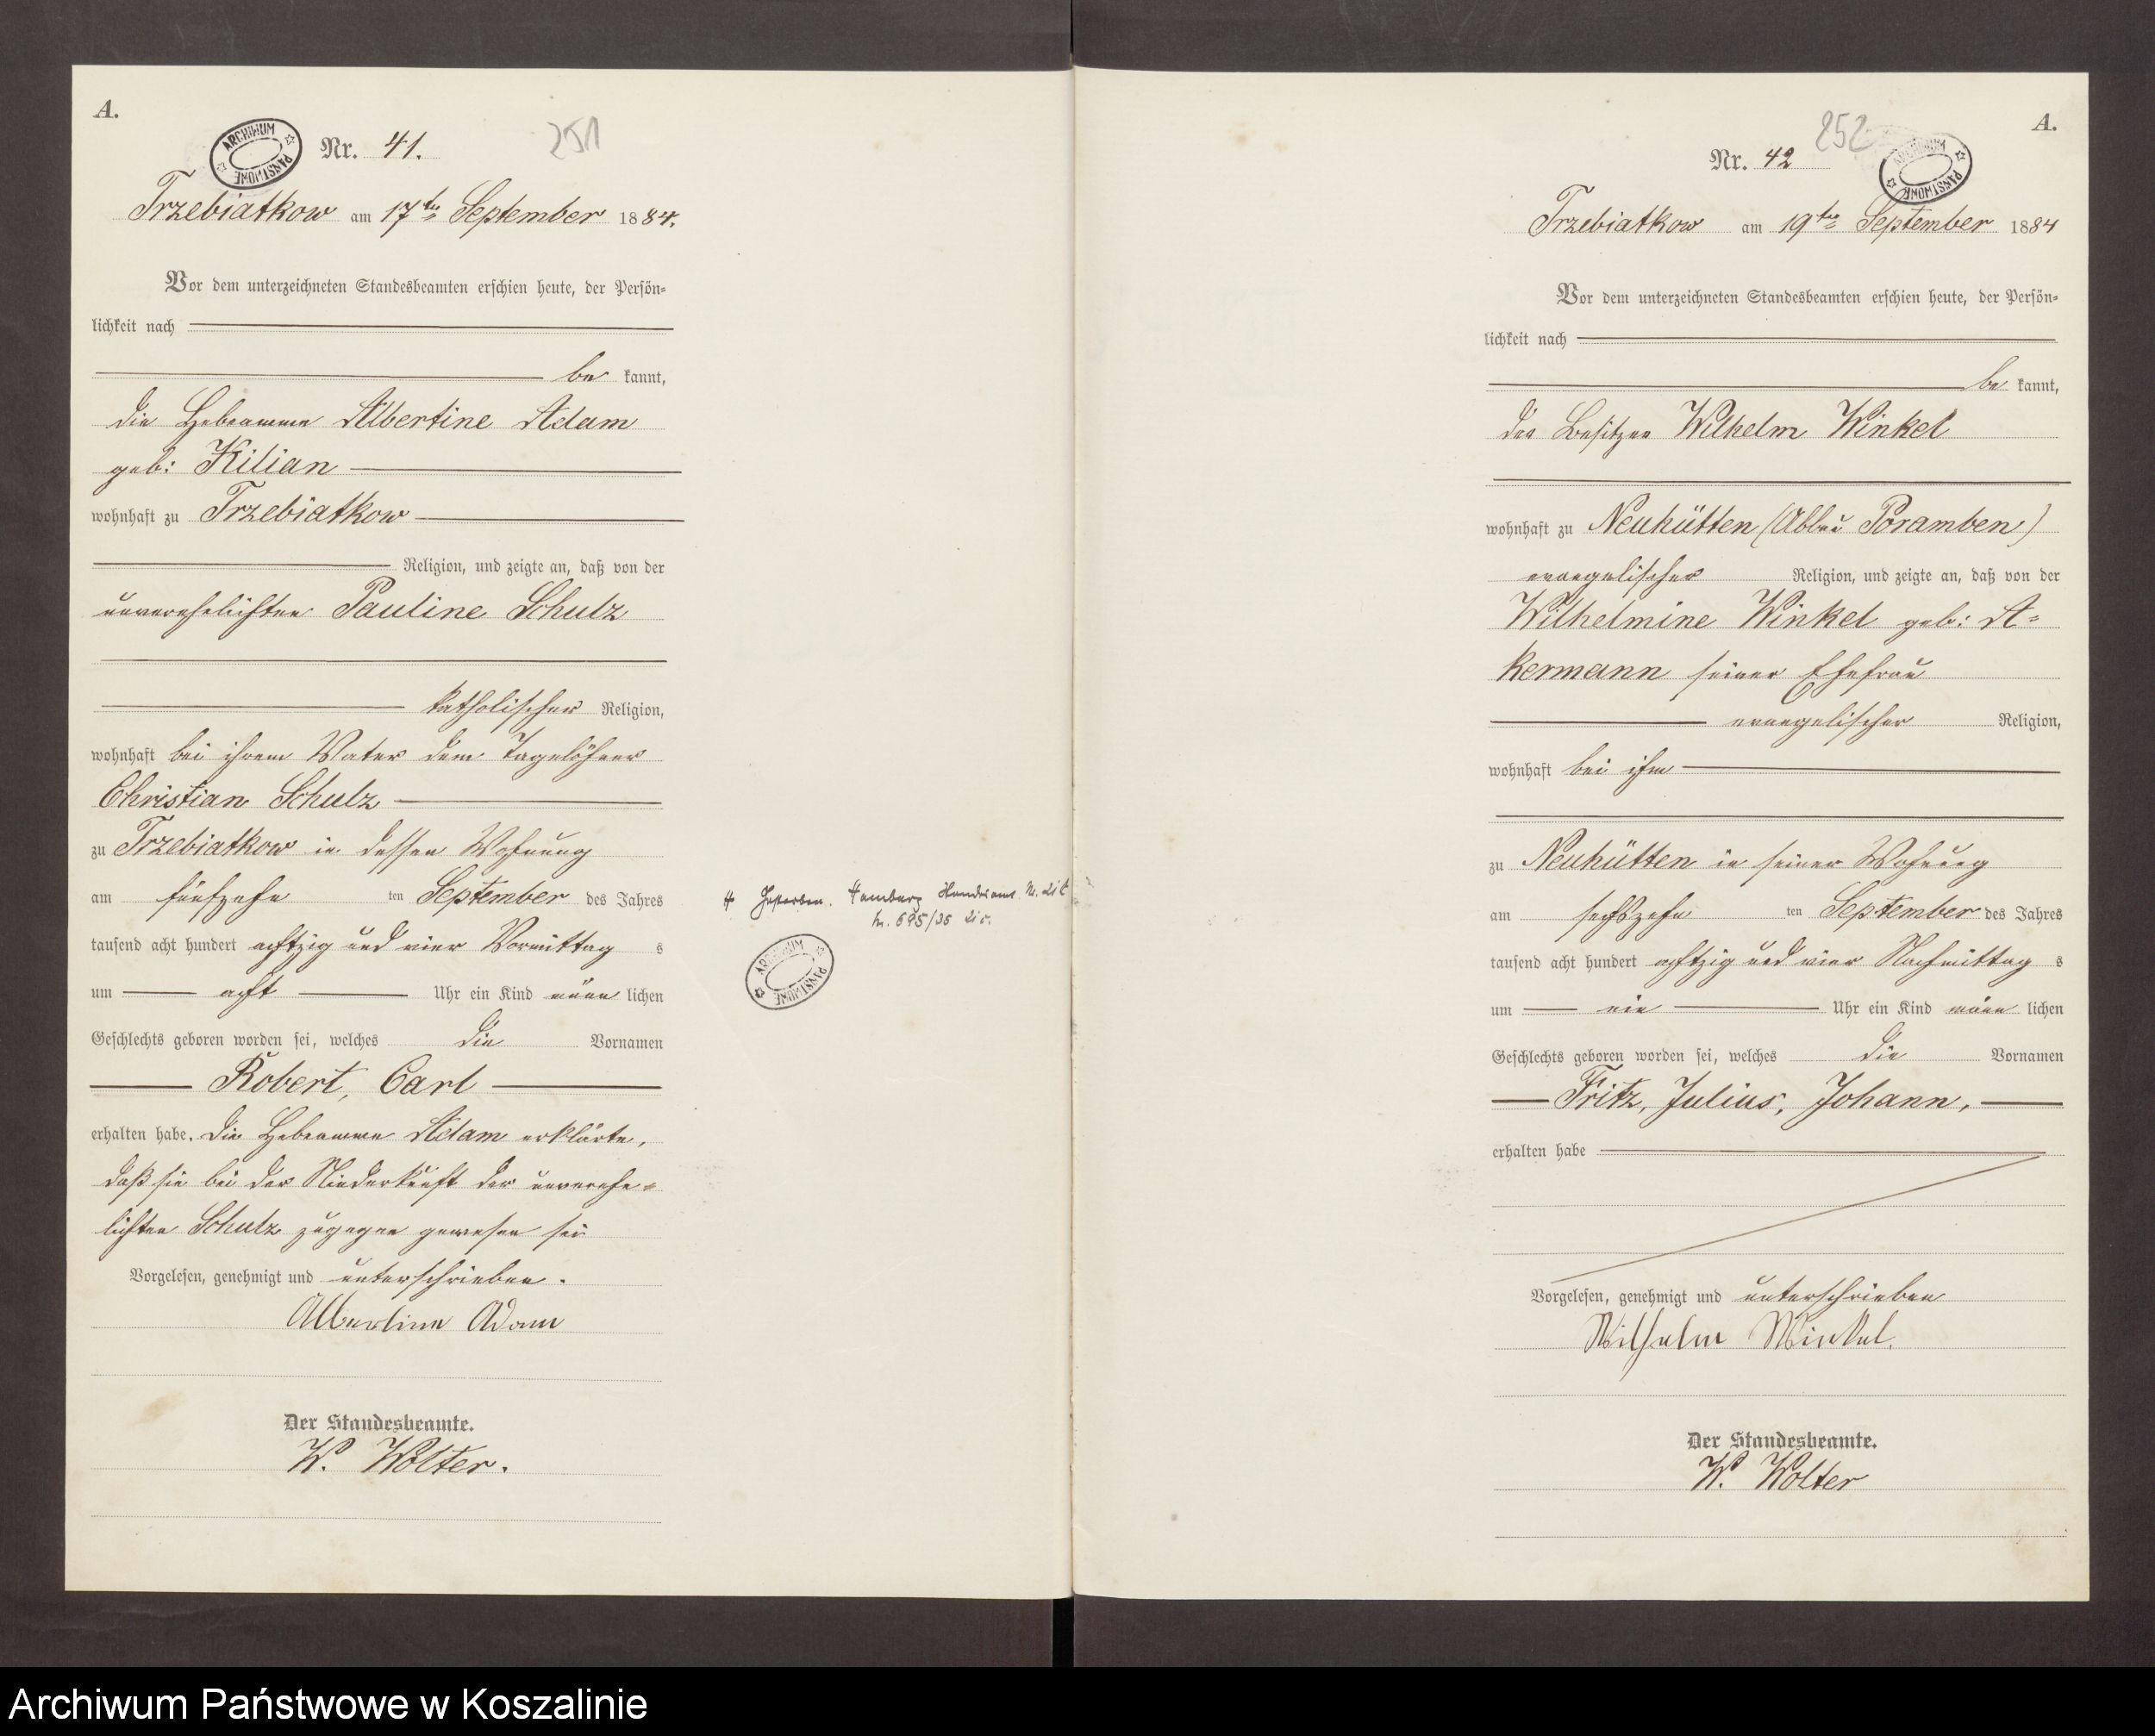 A.
ARCHIWUM PAŃSTWOWE
Nr. 41.
251
Trzebiatkow am 17ten September 1884.
Vor dem unterzeichneten Standesbeamten erschien heute, der Persön=
lichkeit nach
be kannt,
die Hebeamme Albertine Adam
geb: Kilian
wohnhaft zu Trzebiatkow
Religion, und zeigte an, daß von der
unverehelichten Pauline Schulz
katholischer Religion,
wohnhaft bei ihrem Vater dem Tagelöhner
Christian Schulz
zu Trzebiatkow in dessen Wohnung
am fünfzehn ten September des Jahres
tausend acht hundert achtzig und vier Vormittag s
um acht Uhr ein Kind männ lichen
Geschlechts geboren worden sei, welches die Vornamen
Robert, Carl
erhalten habe. Die Hebeamme Adam erklärte,
daß sie bei der Niederkunft der unverehe=
lichten Schulz zugegen gewesen sei
Vorgelesen, genehmigt und unterschrieben.
Albertine Adam
Der Standesbeamte.
W. Wolter.
Gestorben. Hamburg
Nr. 695/36
ARCHIWUM PAŃSTWOWE
A.
252
Nr. 42
ARCHIWUM PAŃSTWOWE
Trzebiatkow am 19ten September 1884
Vor dem unterzeichneten Standesbeamten erschien heute, der Persön=
lichkeit nach
be kannt,
der Besitzer Wilhelm Winkel
wohnhaft zu Neuhütten (Abbau Poramben)
evangelischer Religion, und zeigte an, daß von der
Wilhelmine Winkel geb: A=
kermann seiner Ehefrau
evangelischer Religion,
wohnhaft bei ihm
zu Neuhütten in seiner Wohnung
am sechszehn ten September des Jahres
tausend acht hundert achtzig und vier Nachmittag s
um ein Uhr ein Kind männ lichen
Geschlechts geboren worden sei, welches die Vornamen
Fritz, Julius, Johann,
erhalten habe
Vorgelesen, genehmigt und unterschrieben
Wilhelm Winkel.
Der Standesbeamte.
W. Wolter
Archiwum Państwowe w Koszalinie